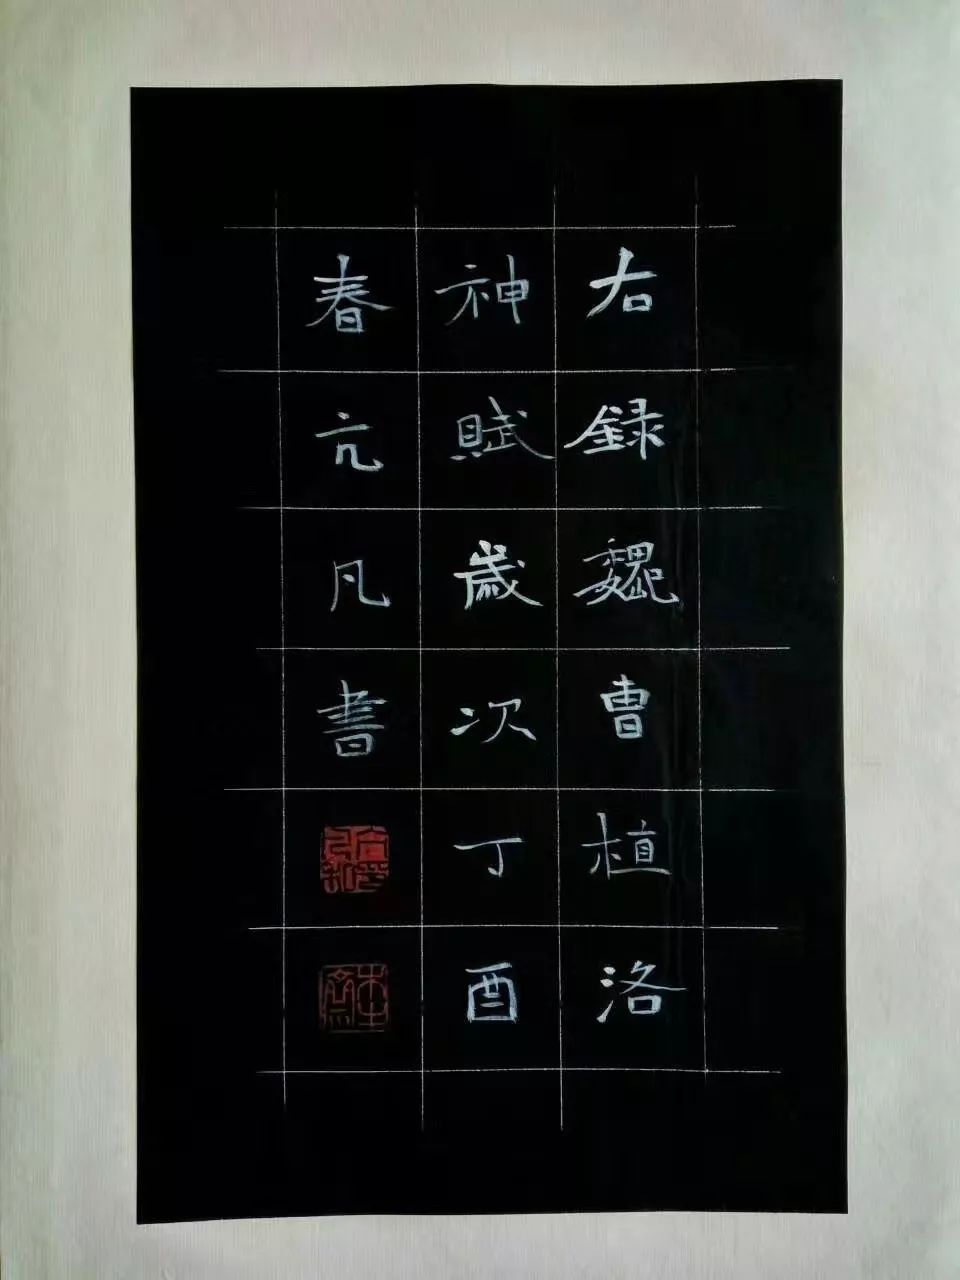 右録魏曹植洛
神賦歲次丁酉
春亢凡書